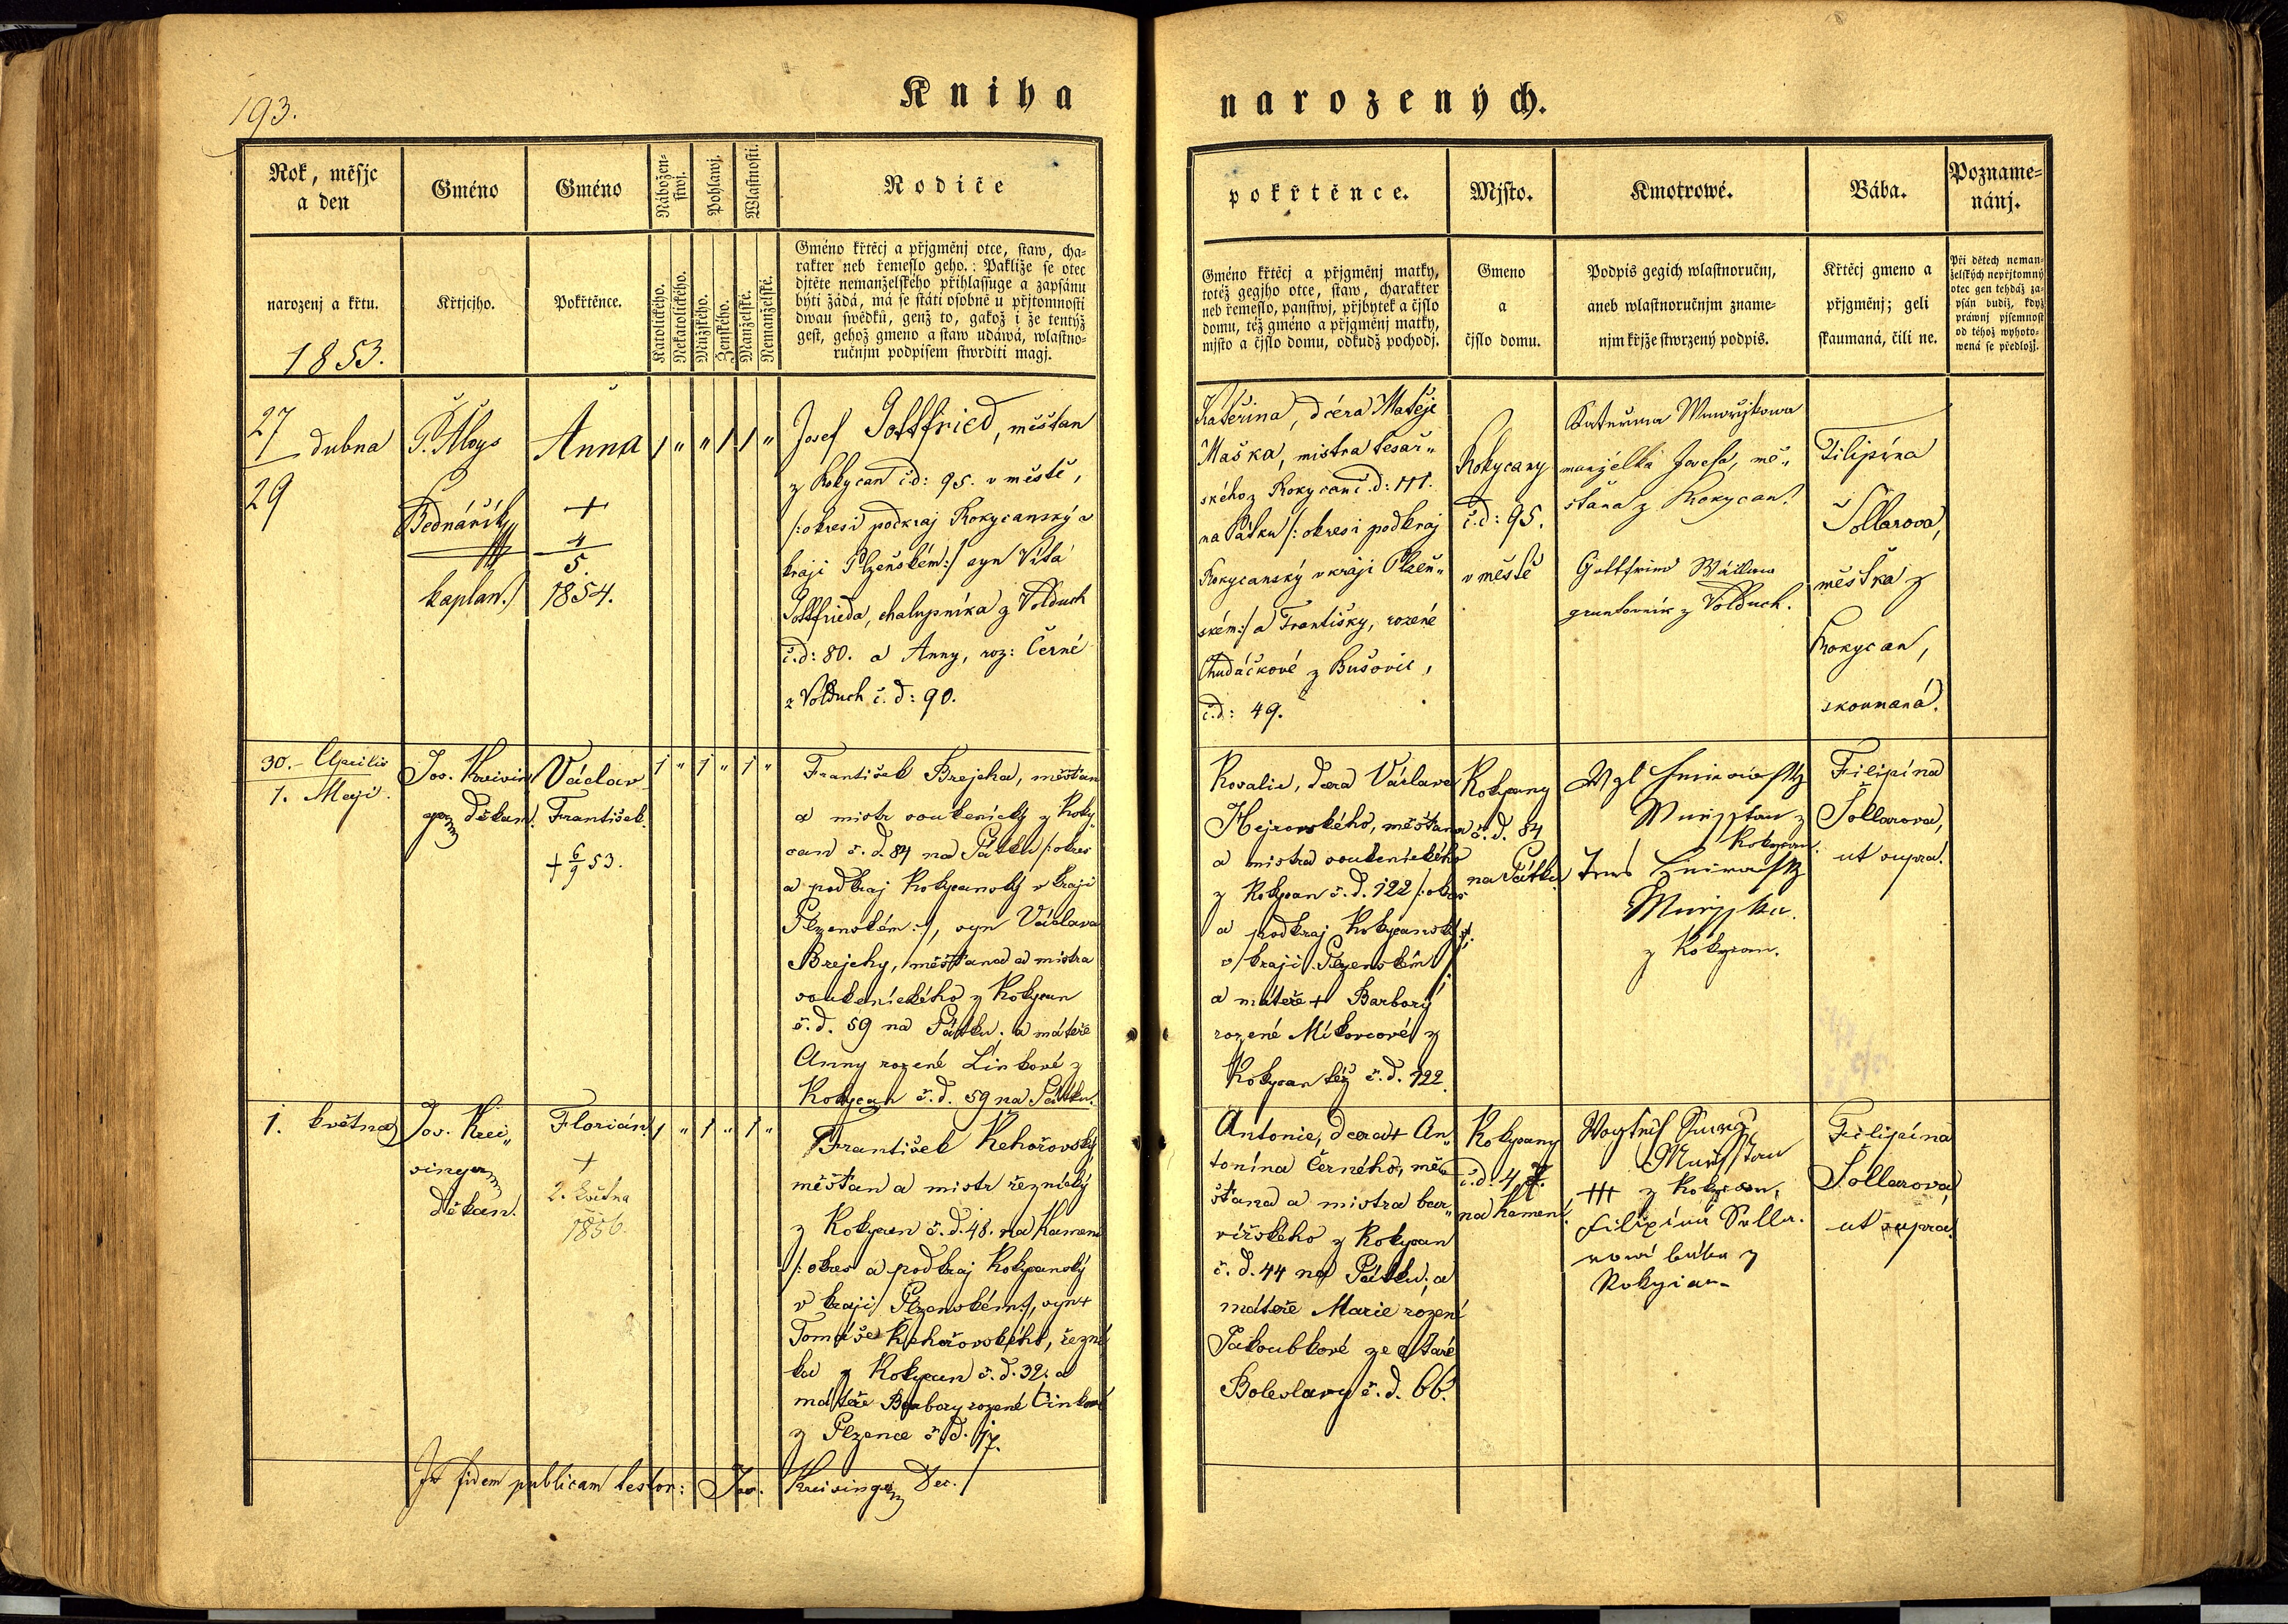 193.
Kniha
narozených.
Rok, měsjc
a den
narozenj a křtu.
1853.
Gméno
Křtjcjho.
Gméno
Pokřtěnce.
Nábožen-
stwj.
Katolického.
Nekatolického.
Pohlawj.
Mužského.
Ženského.
Wlastnosti.
Manželské.
Nemanželské.
Rodiče
Gméno křtěcj a přjgměnj otce, staw, cha-
rakter neb řemeslo geho.: Pakliže se otec
djtěte nemanželského přihlassuge a zapsánu
býti žádá, má se státi osobně u přjtomnosti
dwau swědků, genž to, gakož i že tentýž
gest, gehož gmeno a staw udáwá, wlastno-
ručnjm podpisem stwrditi magj.
pokřtěnce.
Gméno křtěcj a přjgměnj matky,
totéž gegjho otce, staw, charakter
neb řemeslo, panstwj, přjbytek a čjslo
domu, též gméno a přjgměnj matky,
mjsto a čjslo domu, odkudž pochodj.
Mjsto.
Gmeno
a
čjslo domu.
Kmotrowé.
Podpis gegich wlastnoručnj,
aneb wlastnoručnjm zname-
njm křjže stwrzený podpis.
Bába.
Křtěcj gmeno a
přjgměnj; geli
skaumaná, čili ne.
Pozname-
nánj.
Při dětech neman-
želských nepřjtomný
otec gen tehdáž za-
psán budiž, když
práwnj pjsemnost
od téhož wyhoto-
wená se předložj.
27
dubna
29
P. Aloys
Bednářík
kaplan.
Anna
+
4
5
1854.
1 " " 1 1 "
Josef Gottfried, měšťan
z Rokycan č.d: 95. v městě,
/: okresí podkraj Rokycanský v
kraji Plzeňském:/ syn Víta
Gottfrieda, chalupníka z Volduch
č.d: 80. a Anny, roz: Černé
z Volduch č.d: 90.
Kateřina, dcera Matěje
Maška, mistra tesař„
ského z Rokycan č.d:
na Pátku /: okresí podkraj
Rokycanský v kraji Plzeň„
ském:/ a Františky, rozené
Chudáčkové z Bušovic,
č.d: 49.
Rokycany
č.d: 95.
v městě
Kateřina
manželka Josefa, mě„
šťana z Rokycan.
Gottfried
gruntovník z Volduch.
Filipína
Šollarova,
měštka z
Rokycan,
skoumaná.
30. Aprilis
1. Maji.
Jos. Kreisin
ger děkan.
Václav
František.
+ 6/9 53.
1 " 1 " 1 "
František Brejcha, měšťan
a mistr soukenický z Roky„
can č.d. 84 na Pátku /: okres
a podkraj Rokycanský v kraji
Plzenském:/, syn Václava
Brejchy, měšťana a mistra
soukenického z Rokycan
č.d. 59 na Pátku, a mateře
Anny rozené Linkové z
Rokycan č.d. 59 na Pátku.
Rosalie, dcera Václava
Hejrovského, měšťana
a mistra soukenického
z Rokycan č.d. 122 /: okres
a podkraj Rokycanský
v kraji Plzenském
a mateře + Barbory
rozené Mikovcové z
Rokycan též č.d. 122.
Rokycany
č.d. 84
na Pátku
z
Rokycan.
z Rokycan.
Filipína
Šollarova,
ut supra.
1. května
Jos. Krei„
singer
děkan.
Florián.
+
2. Května
1856.
1 " 1 " 1 "
František Řehořovský
měšťan a mistr řeznický
z Rokycan č.d. 48. na Kameni
/: okres a podkraj Rokycanský
v kraji Plzenském:/, syn +
Tomáše Řehořovského, řezní
ka z Rokycan č.d. 32. a
mateře Barbory rozené Cinkové
z Plzence č.d. 17.
Antonie, dcera + An„
tonína Černého, mě„
šťana a mistra bar„
vířského z Rokycan
č.d. 44 na Pátku, a
mateře Marie rozené
Jakoubkové ze Staré
Boleslavy č.d. 66.
Rokycany
č.d. 47.
na Kameni.
+++ z Rokycan,
Filipína Solla-
rowá bába z
Rokycan
Filipína
Šollarova,
ut supra.
In fidem publicam testor: Jos. Kreisinger Dec.